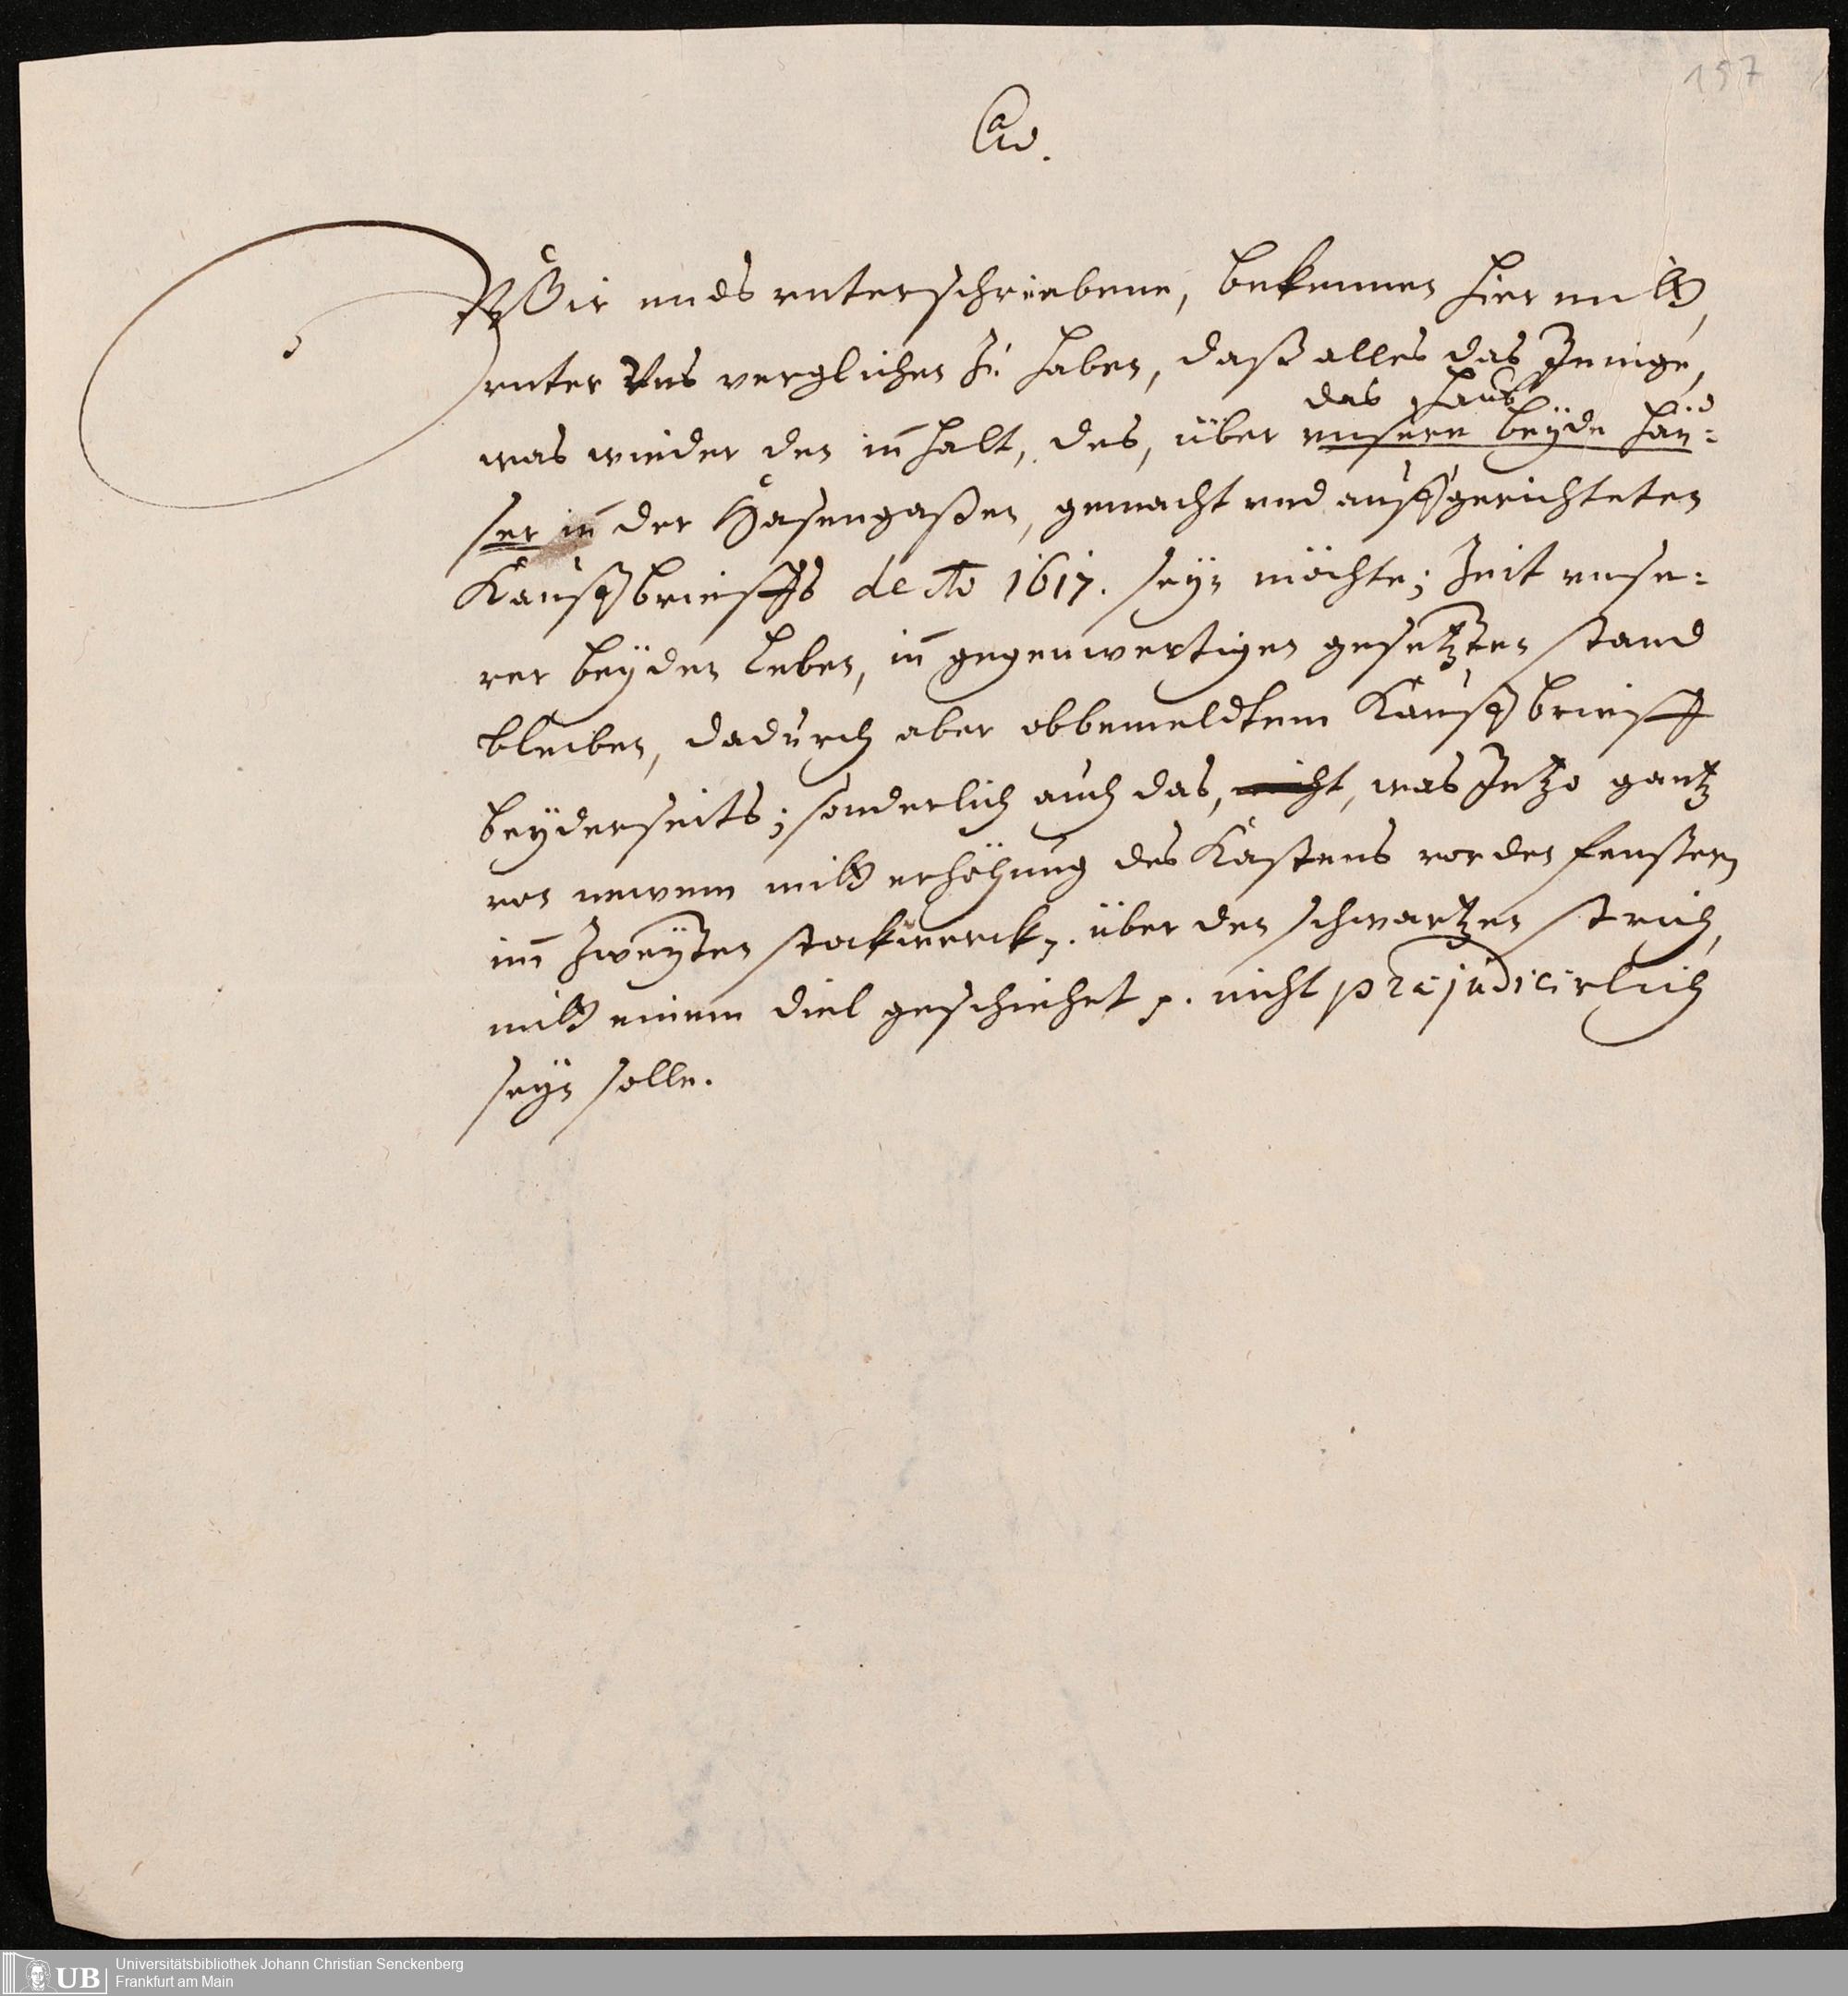 197
Wir ends unterschriebene, bekennen hiermitt,
unter Uns verglichen zu haben, daß alles das Jenige,
das Haus
was wieder den inhalt, des, über unsere beyde häu-
ser in der Hasengaßen, gemacht und auffgerichteten
Kauffbrieffs de Ao 1617. seyn möchte; Zeit unse-
rer beyden leben, in gegenwertigen gesetzten stand
bleiben, dadurch aber obbemeldtem Kauffbrieff
beyderseits; sonderlich auch das, nicht, was Jetzo gantz
von newem mitt erhöhung des Kastens vor den fenstern
im Zweyten stockwerck, über den schwartzen strich,
mitt einem diel geschiehet p. nicht præjudicirlich
seyn solle.
UB
Universitätsbibliothek Johann Christian Senckenberg
Frankfurt am Main